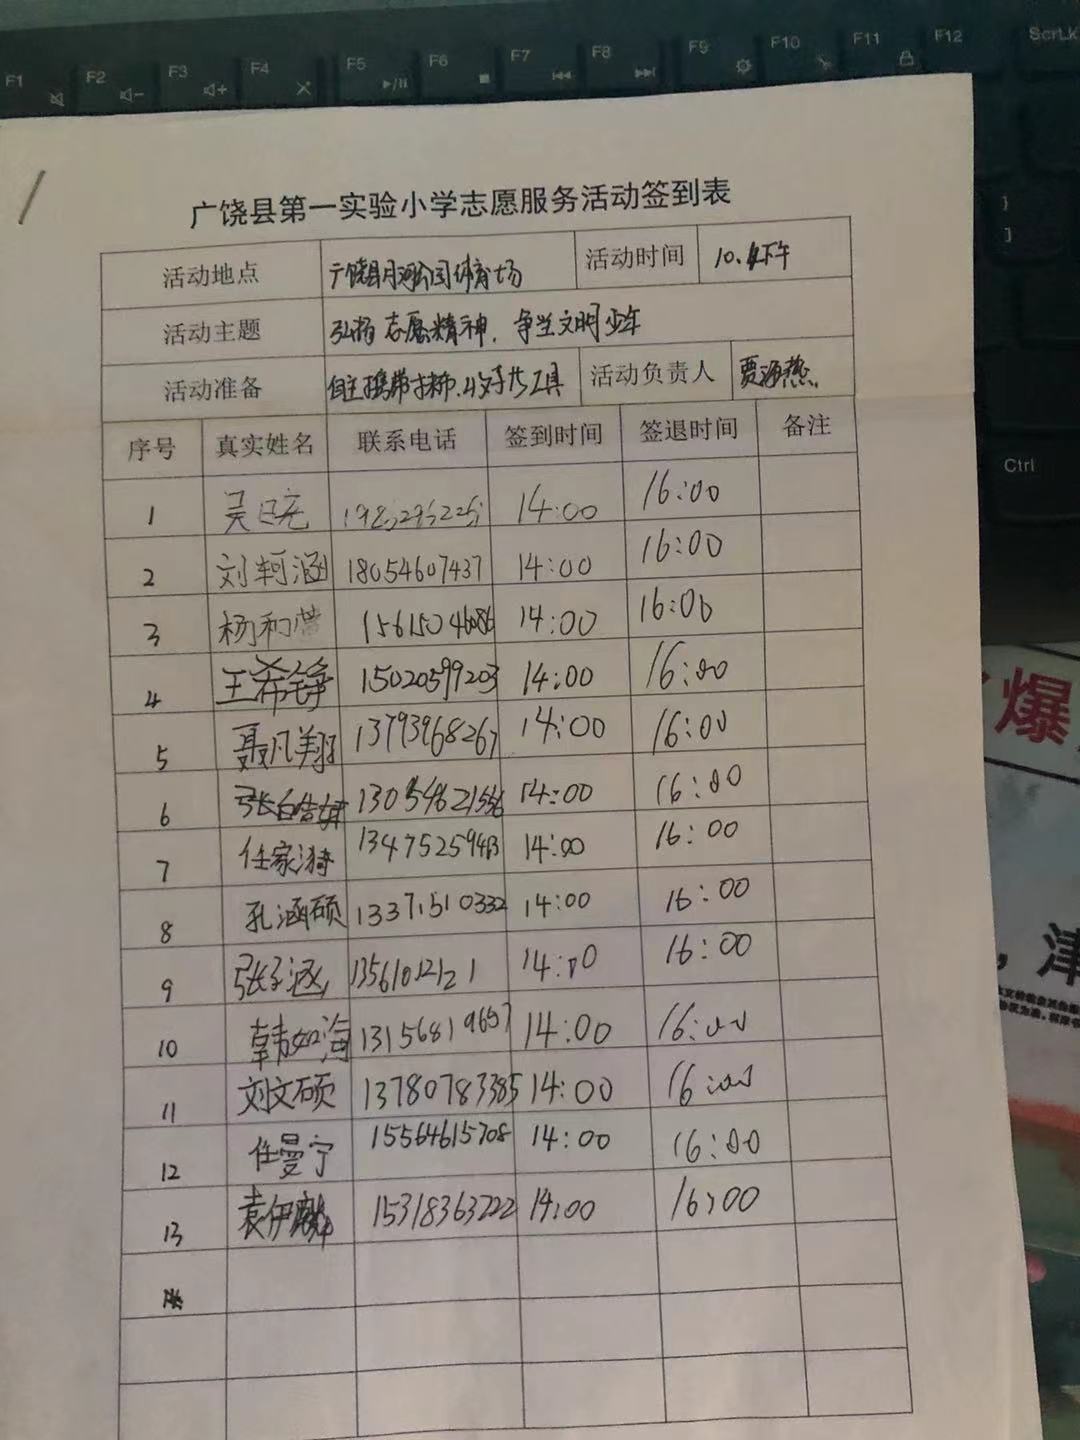 F1 F2 F3 F4 F5 F6 F7 F8 F9 F10 F11 F12 ScrLK
广饶县第一实验小学志愿服务活动签到表
活动地点 广饶县月河公园体育场 活动时间 10. 下午
活动主题 弘扬志愿精神,争当文明少年
活动准备 自主携带抹布、 工具 活动负责人 贾海燕
序号 真实姓名 联系电话 签到时间 签退时间 备注
1 吴 14:00 16:00
2 刘轲涵 18054607437 14:00 16:00
3 杨和 14:00 16:00
4 王希铮 15020599203 14:00 16:00
5 聂凡翔 13793968267 14:00 16:00
6 14:00 16:00
7 任家漪 14:00 16:00
8 孔涵硕 13371510332 14:00 16:00
9 张子涵 14:00 16:00
10 韩如海 13156819657 14:00 16:00
11 刘文硕 13780783385 14:00 16:00
12 任曼宁 15564615708 14:00 16:00
13 袁伊麟 15318363222 14:00 16:00
Ctrl
爆
,津